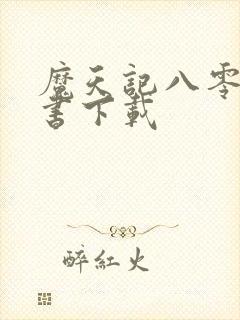 魔天記八零
書下載
醉紅火